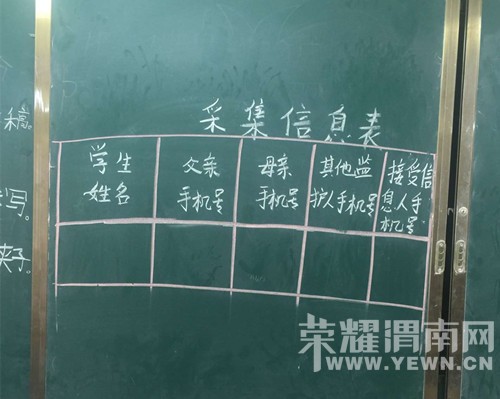 采集信息表
学生
姓名
父亲
手机号
母亲
手机号
其他监
护人手机号
接受信
息人手
机号
稿。
写。
夹子
荣耀渭南网
WWW.YEWN.CN